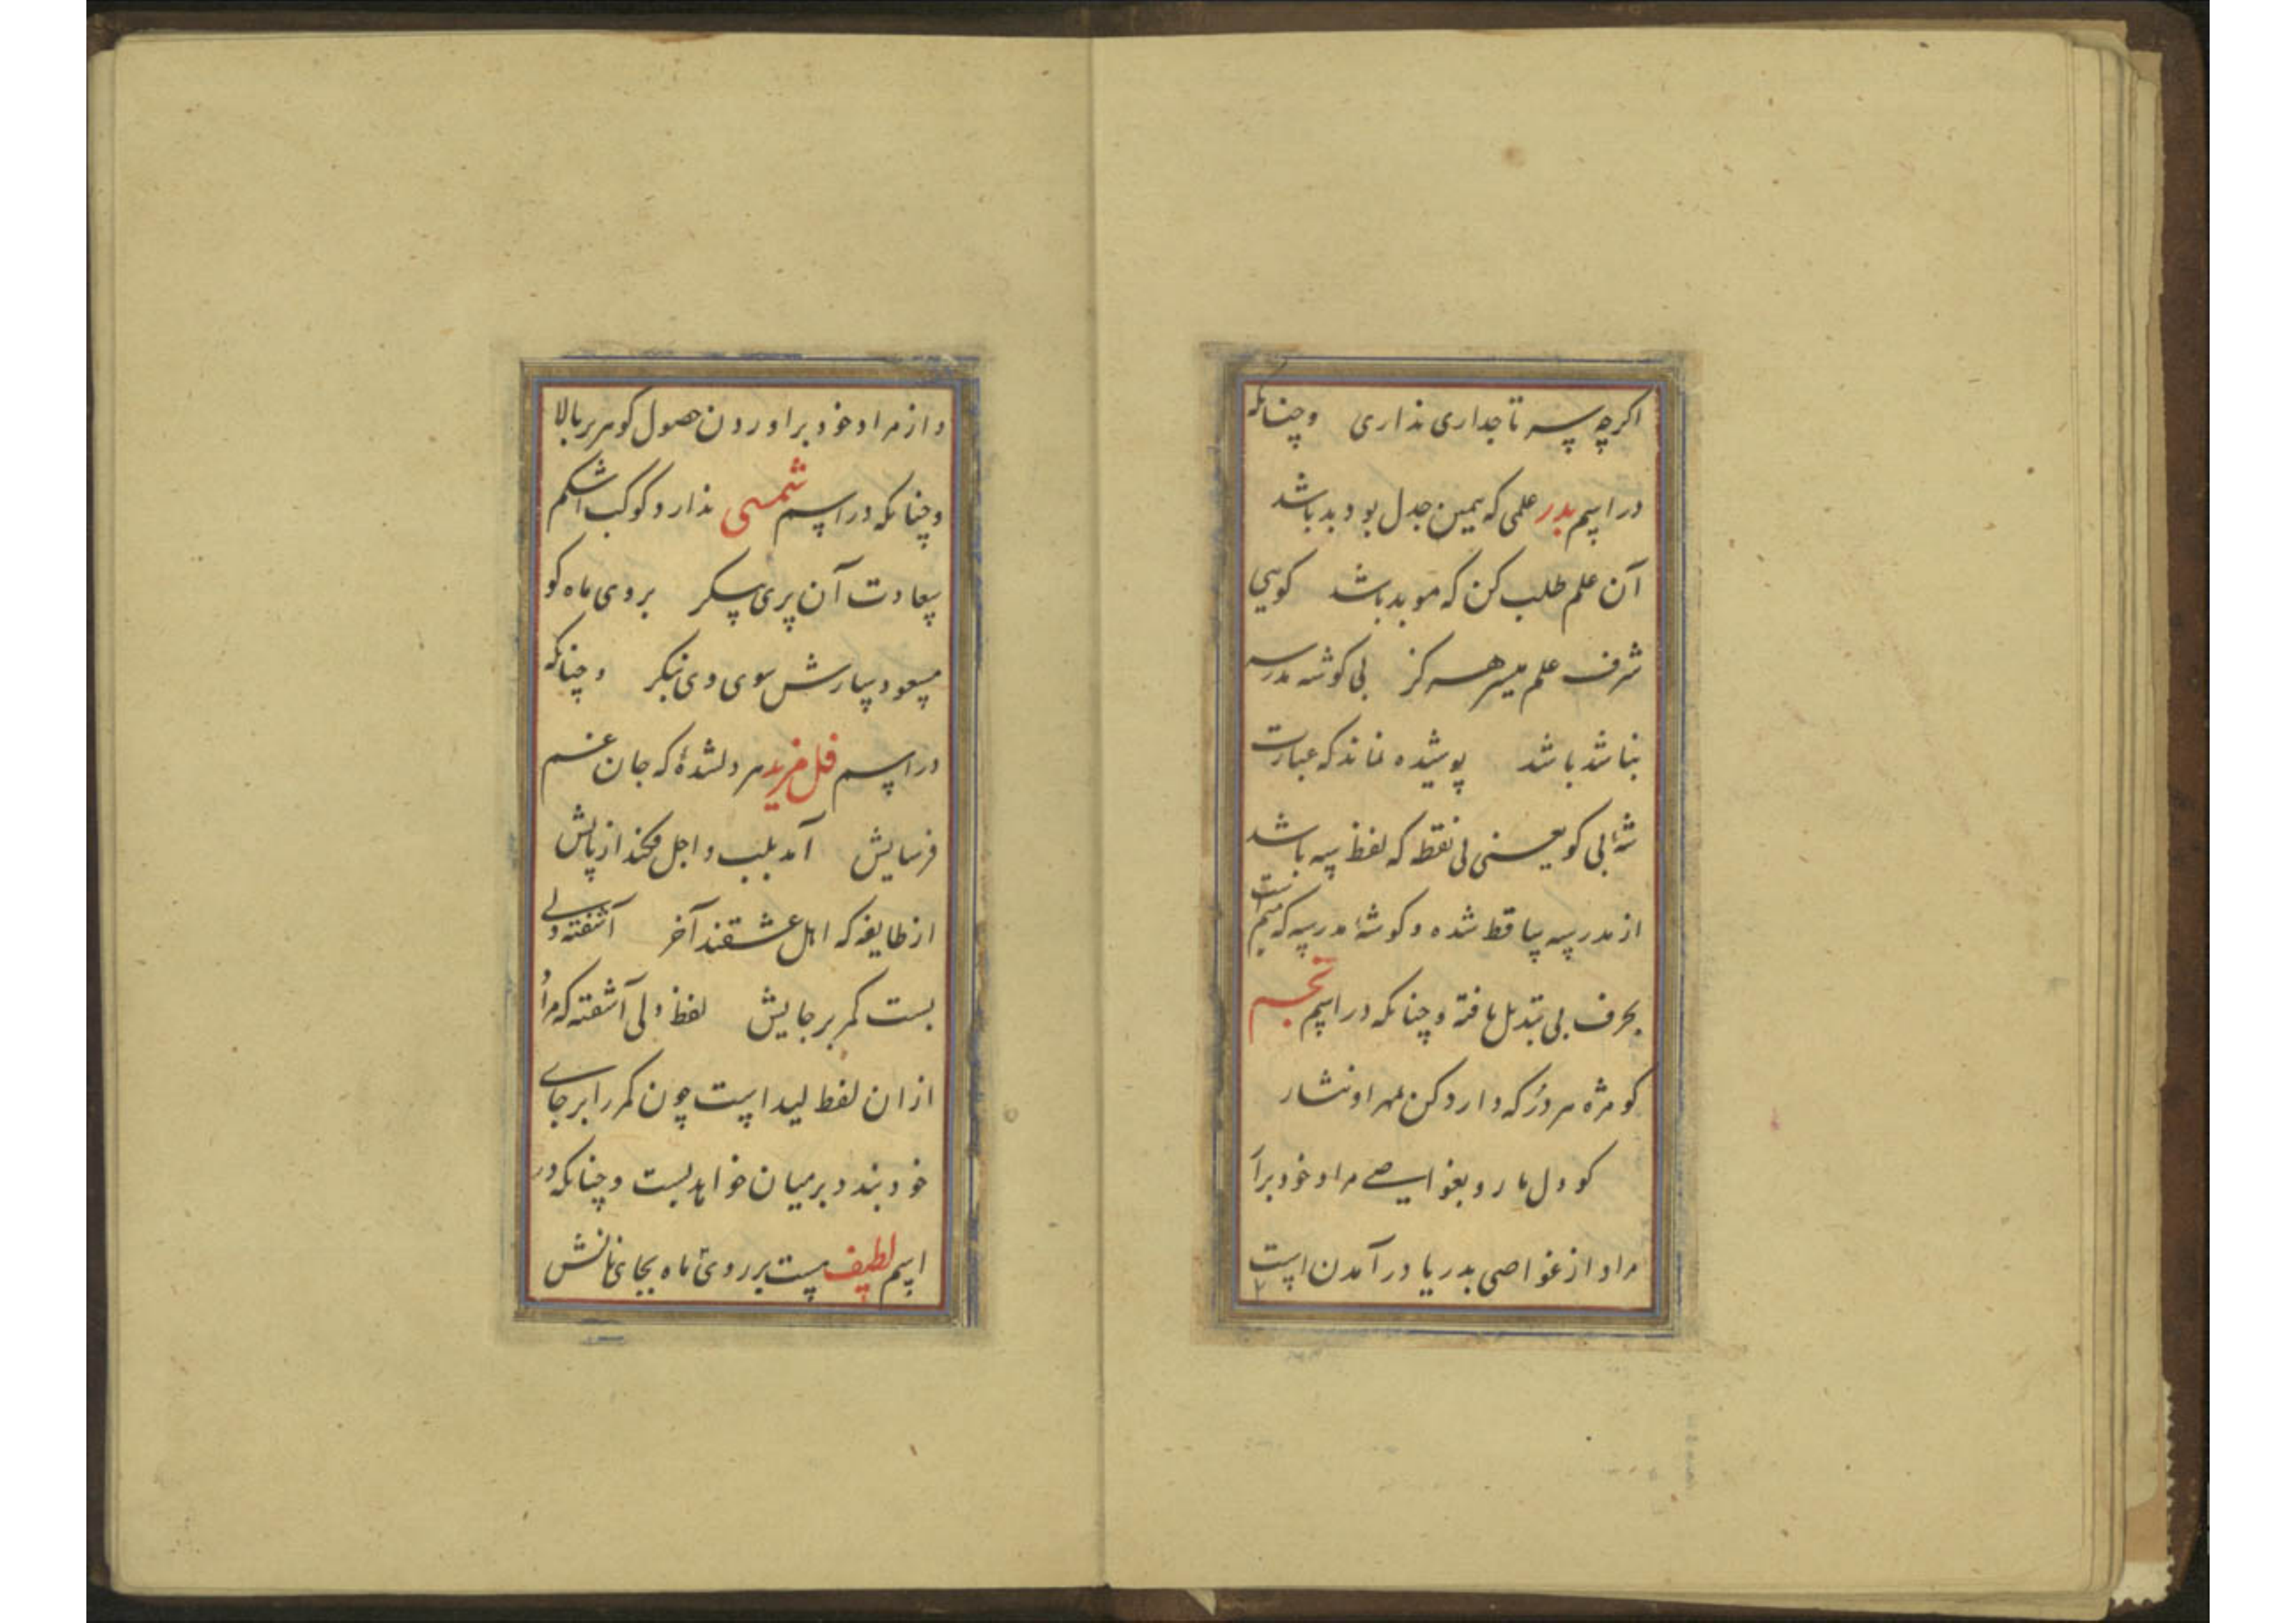 اکرچه سر تاجداری نداری وچنانکه
در اسم بدر علمی که یمین جدل بود بد باشد
آن علم طلب کن که موبد باشد کویی
شرف علم میسر هرکز بی کوشه مدرسه
بنا شد باشد پوشیده نماند که عبارت
شه بی کو یعنی بی نقطه که لفظ سه باشد
از مدرسه ساقط شده و کوشهٔ مدرسه که میم است
بحرف بی تبدیل یافته و چنانکه در اسم نجم
کو مژه هر در که دارد کن بهر او نثار
کو دل ما رو بغواصی مراد خود برآ
مراد از غواصی بدریا در آمدن است
و از مراد خود براوردن حصول کوهر بر بالا
وچنانکه در اسم شمسی ندارد کوکب اشکم
سعادت آن پری پیکر بروی ماه کو
مسعود سارش سوی وی بنکر و چنانکه
در اسم هر دلشدهٔ که جان غم
فرسایش آمد بلب و اجل فکند از پایش
از طایفه که اهل عشقند آخر آشفته دلی
بست کمر بر جایش لفظ ولی آشفته که مراد
ازان لفظ لید است چون کمر را بر جای
خود بندد بر میان خواهد بست وچنانکه در
اسم لطیف پست بر روی ماه بجای نانش